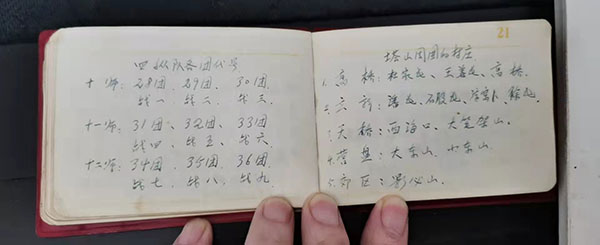 四纵队各团代号
十师: 28团、29团、30团
战一、战二、战三、
十一师: 31团、32团、33团
战四、战五、战六
十二师: 34团、35团、36团
战七、战八、战九
21
塔山周围的村庄
1. 高桥: 杜家屯、王善屯、高桥
2.
3. 天桥: 西海口、大笔架山、
4. 营盘: 大东山、小东山、
5. 郊区: 影必山、